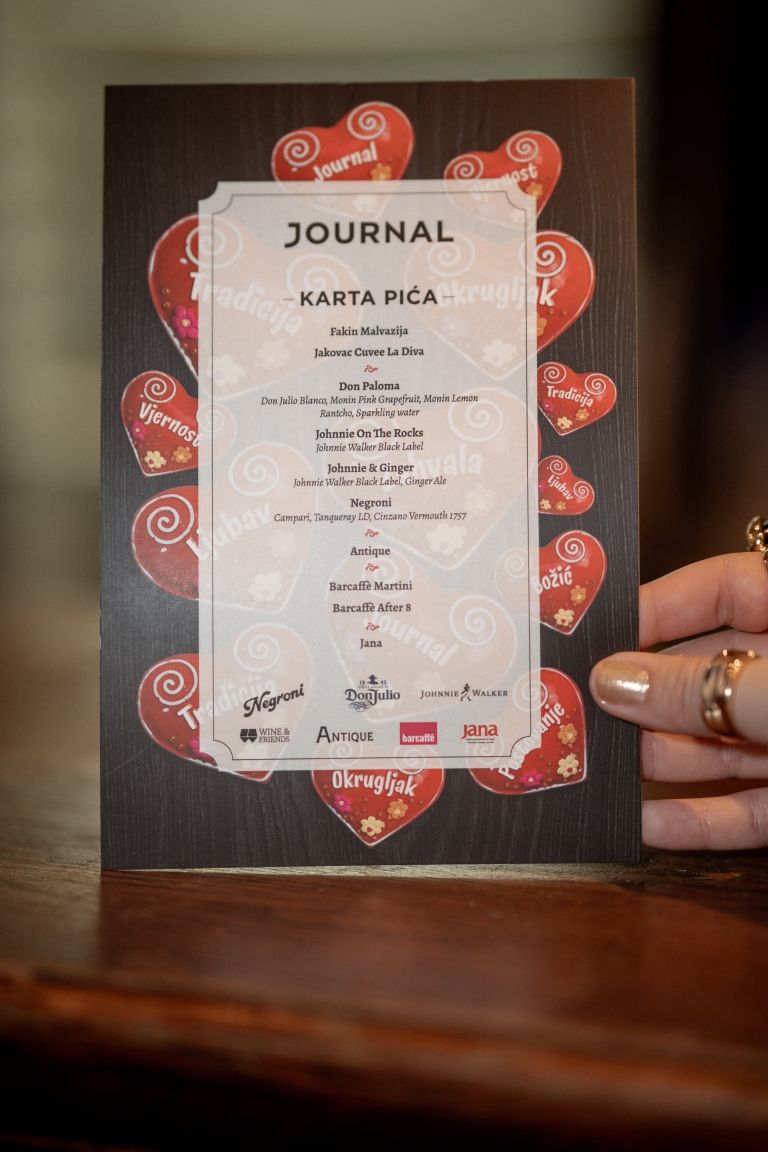 Journal
JOURNAL
KARTA PIĆA
Fakin Malvazija
Jakovac Cuvee La Diva
Don Paloma
Don Julio Blanco, Monin Pink Grapefruit, Monin Lemon
Rantcho, Sparkling water
Johnnie On The Rocks
Johnnie Walker Black Label
Johnnie & Ginger
Johnnie Walker Black Label, Ginger Ale
Negroni
Campari, Tanqueray LD, Cinzano Vermouth 1757
Antique
Barcaffè Martini
Barcaffè After 8
Jana
Negroni
1942
Don Julio
JOHNNIE WALKER
WINE & FRIENDS
ANTIQUE
barcaffè
Jana
Tradicija
Okrugljak
Vjernost
Tradicija
Ljubav
Ljubav
Božić
Journal
Tradicija
Okrugljak